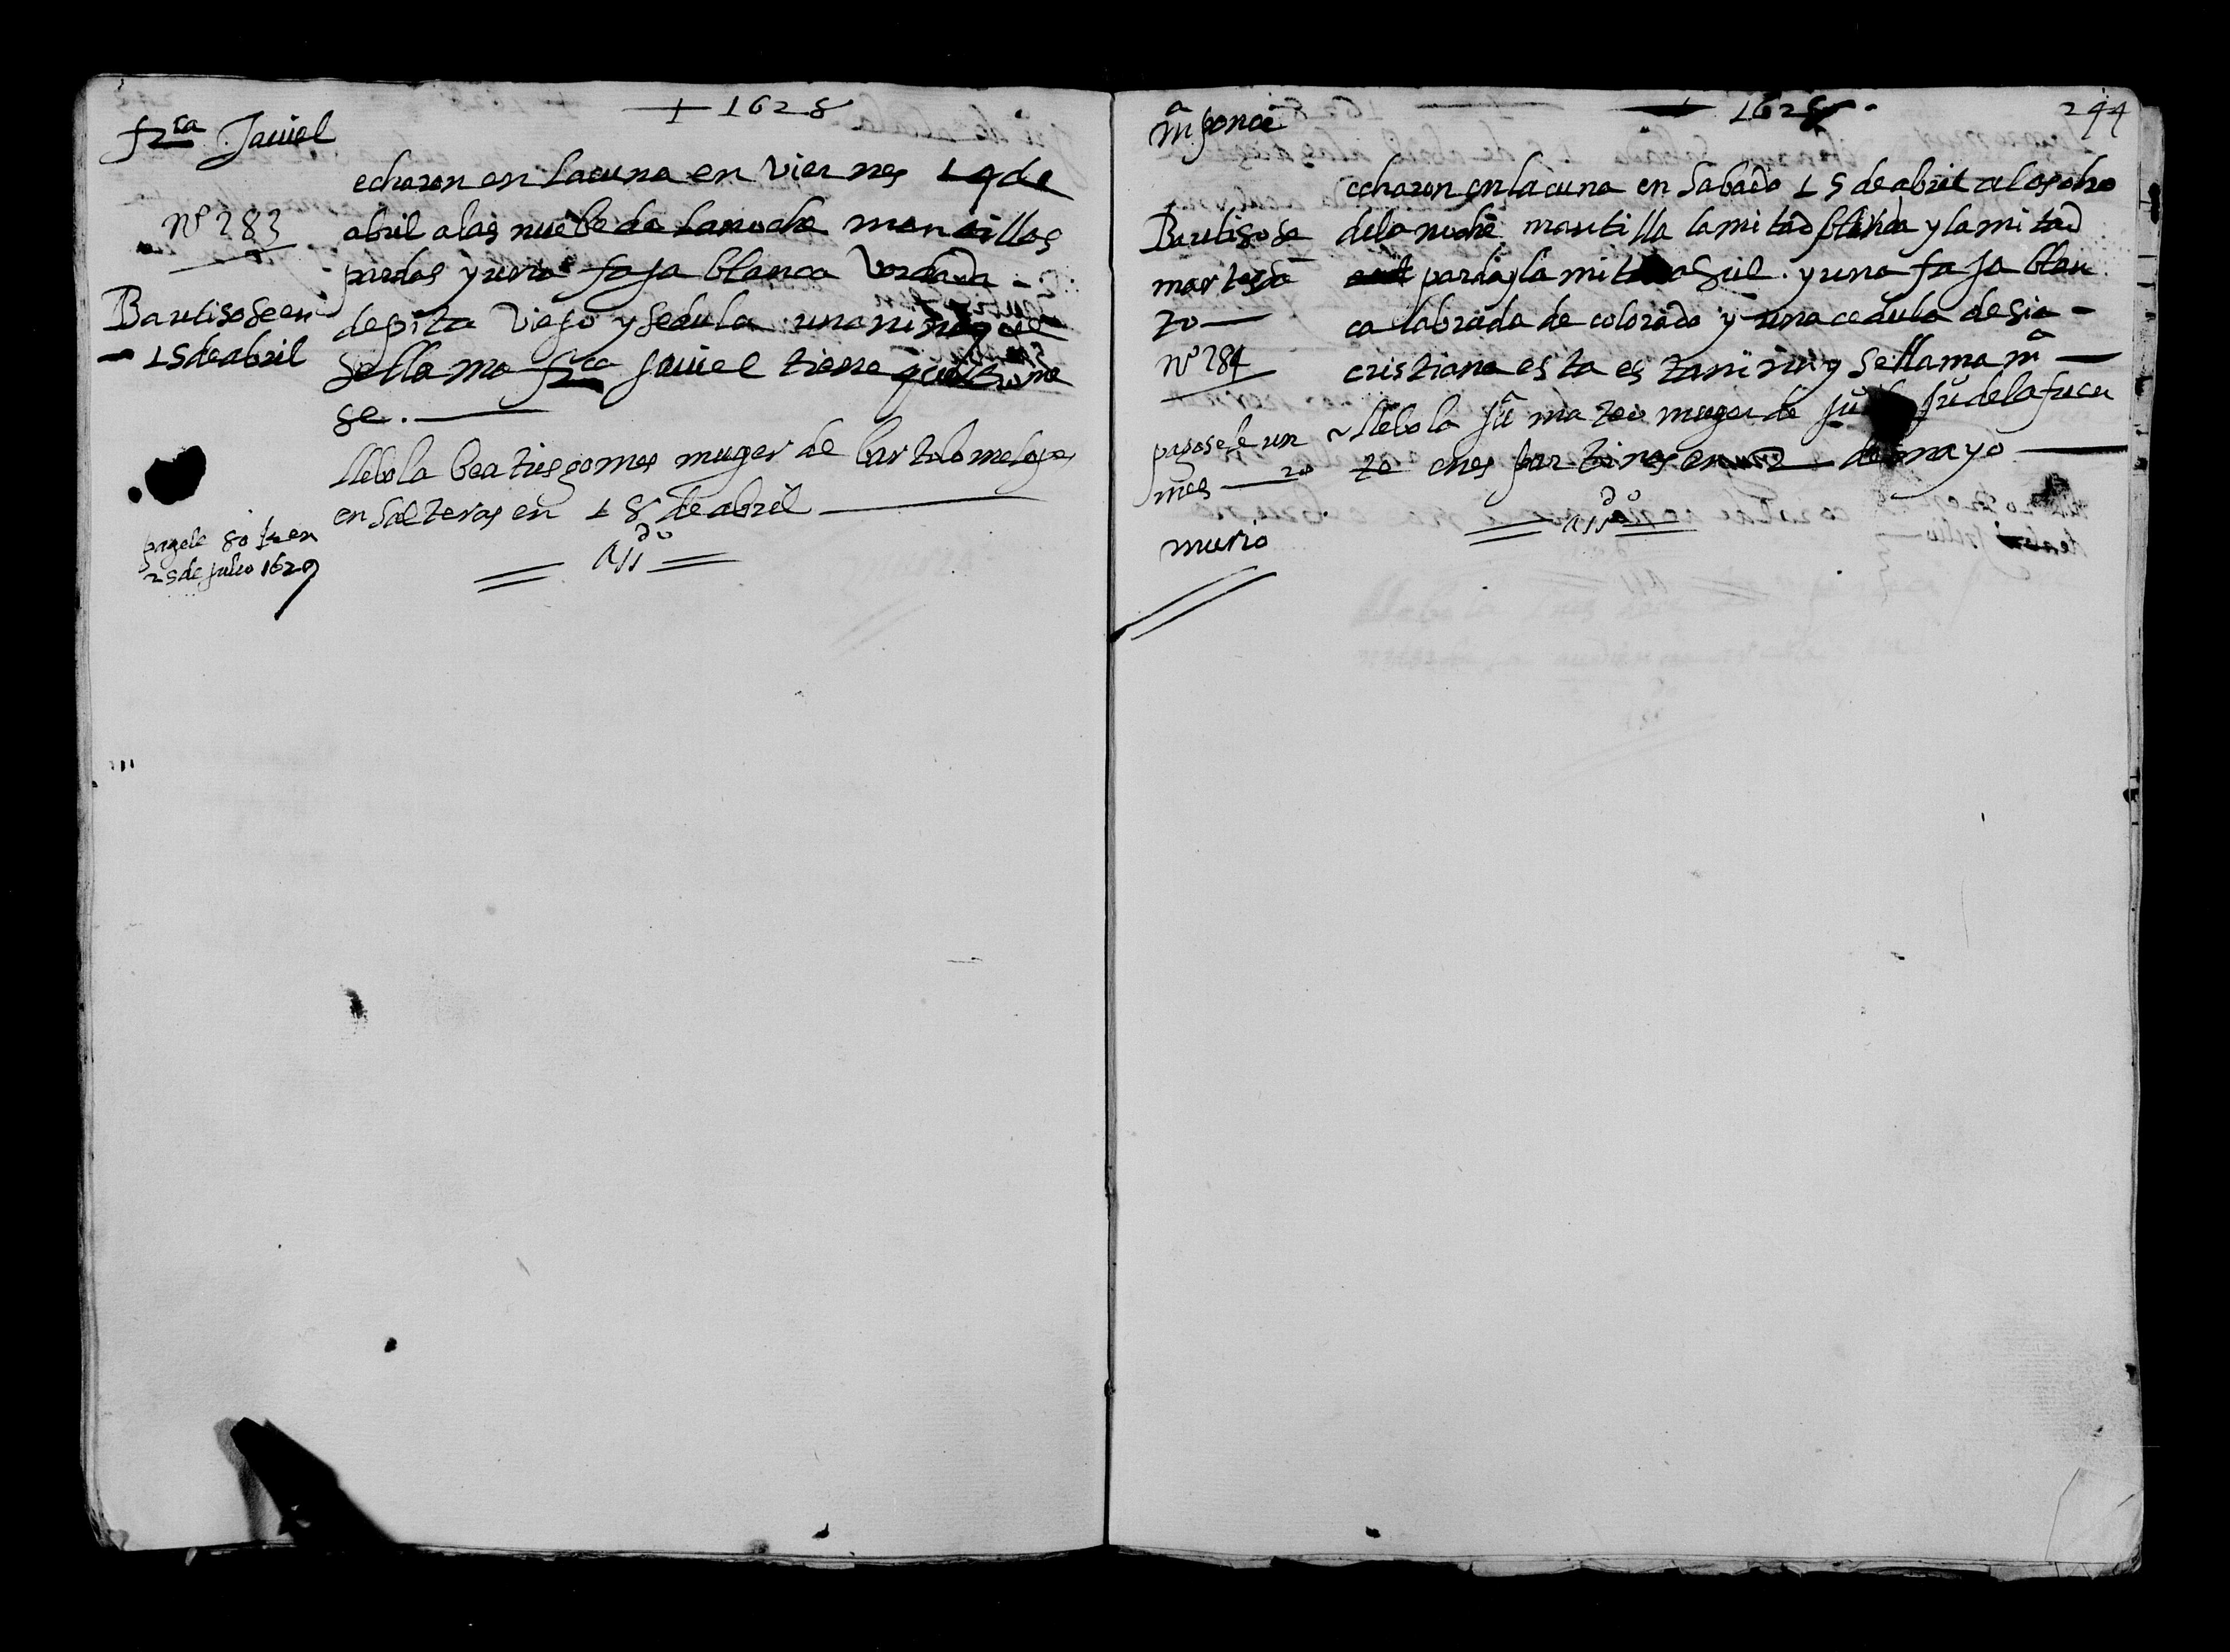 + 1628
fr^ca Jauiel
echaron en la cuna en Viernes 14 de
abril a las nuebe de la noche mantillas
pardas y una faja blanca Vordada
de pita Viejo y sedula una niña que
se llama fr^ca Jauiel tiene
se.
llebola beatris gomes muger de bartolome lopes
en salteras en 18 de abril
a^do
nº 283
Bautisose en
15 de abril
pagele 80 en
25 de julio 1629
+ 1628
244
m^a ponce
echaron en la cuna en Sabado 15 de abril a las ocho
de la noche mantilla la mitad blanca y la mitad
parda y la mitad asul. y una faja blan
ca labrada de colorado y una cedula desia
cristiana esta es ta niña y se llama m^a
llebola ju^a mateo muger de ju^o ju^o de la fuen
te en mes por tines en 2 de mayo
a^do
Bautisose
martes
nº 284
pagosele un
mes 20
murio